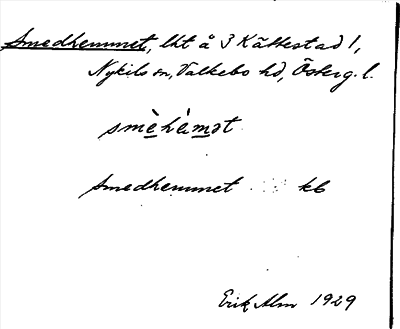 Smedhemmet, lht å 3 Kättestad 1,
Nykils sn, Valkebo hd, Österg. l.
smèhèmət
Smedhemmet kb
Erik Alm 1929